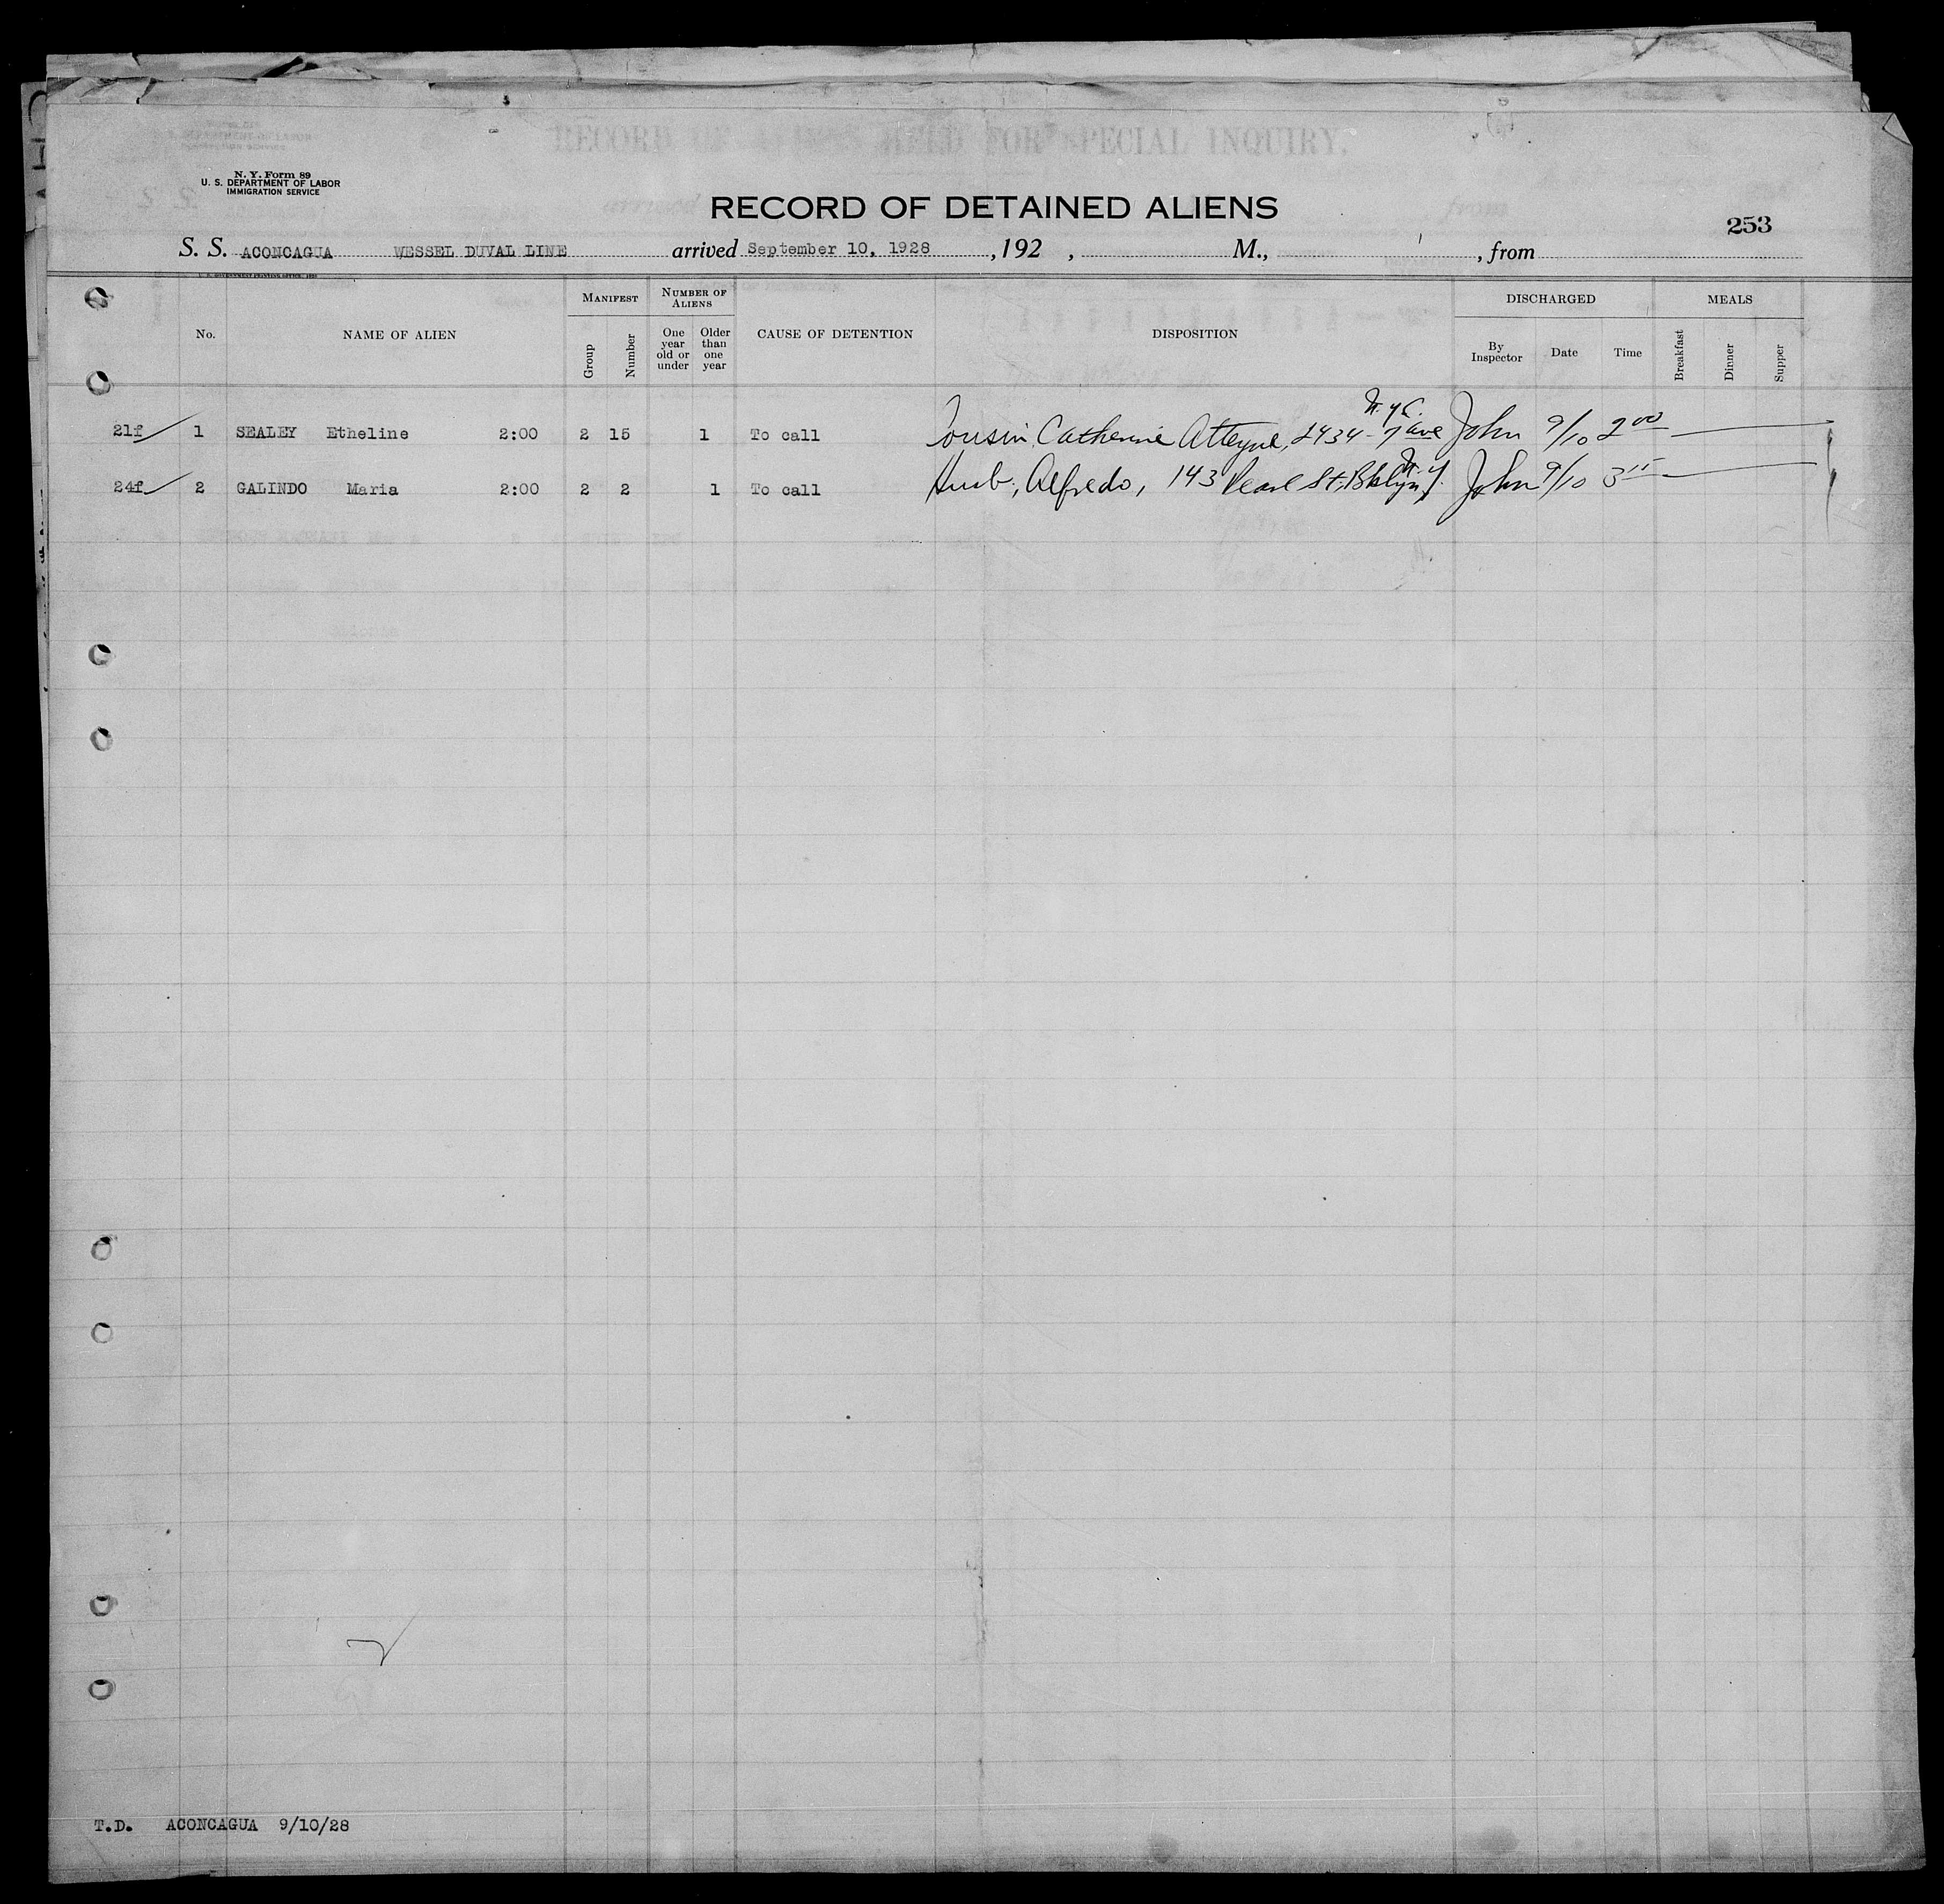 N. Y. Form 89
U. S. DEPARTMENT OF LABOR
IMMIGRATION SERVICE
RECORD OF DETAINED ALIENS
253
S. S. ACONCAGUA WESSEL DUVAL LINE arrived September 10, 1928 , 192 , M., , from
No. NAME OF ALIEN MANIFEST Group Number NUMBER OF ALIENS One year old or under Older than one year CAUSE OF DETENTION DISPOSITION DISCHARGED By Inspector Date Time MEALS Breakfast Dinner Supper
21f 1 SEALEY Etheline 2:00 2 15 1 To call Cousin, Catherine Alleyne, 2434 - 7 ave N.Y.C. John 9/10 2 00
24f 2 GALINDO Maria 2:00 2 2 1 To call Husb., Alfredo, 143 Pearl St, Bklyn N.Y. John 9/10 3 15
T.D. ACONCAGUA 9/10/28